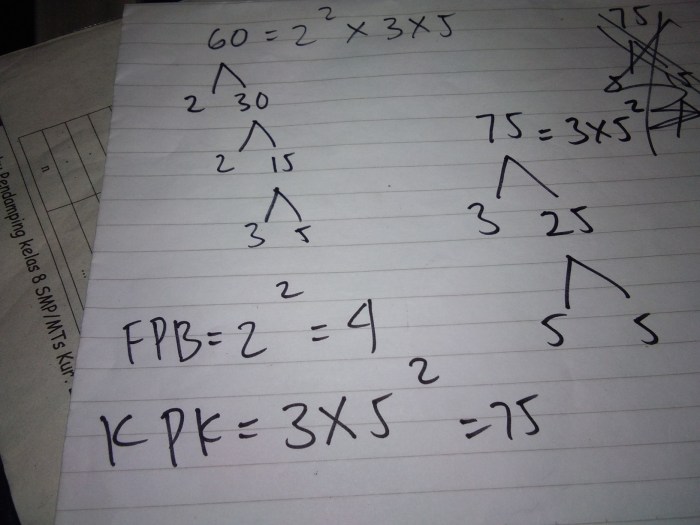 60 = 2² × 3 × 5
2 30
2 15
3 5
75
75 = 3×5²
3 25
5 5
FPB = 2² = 4
KPK = 3×5² = 75
Pendamping kelas 8 SMP/MTs Kur
n
...